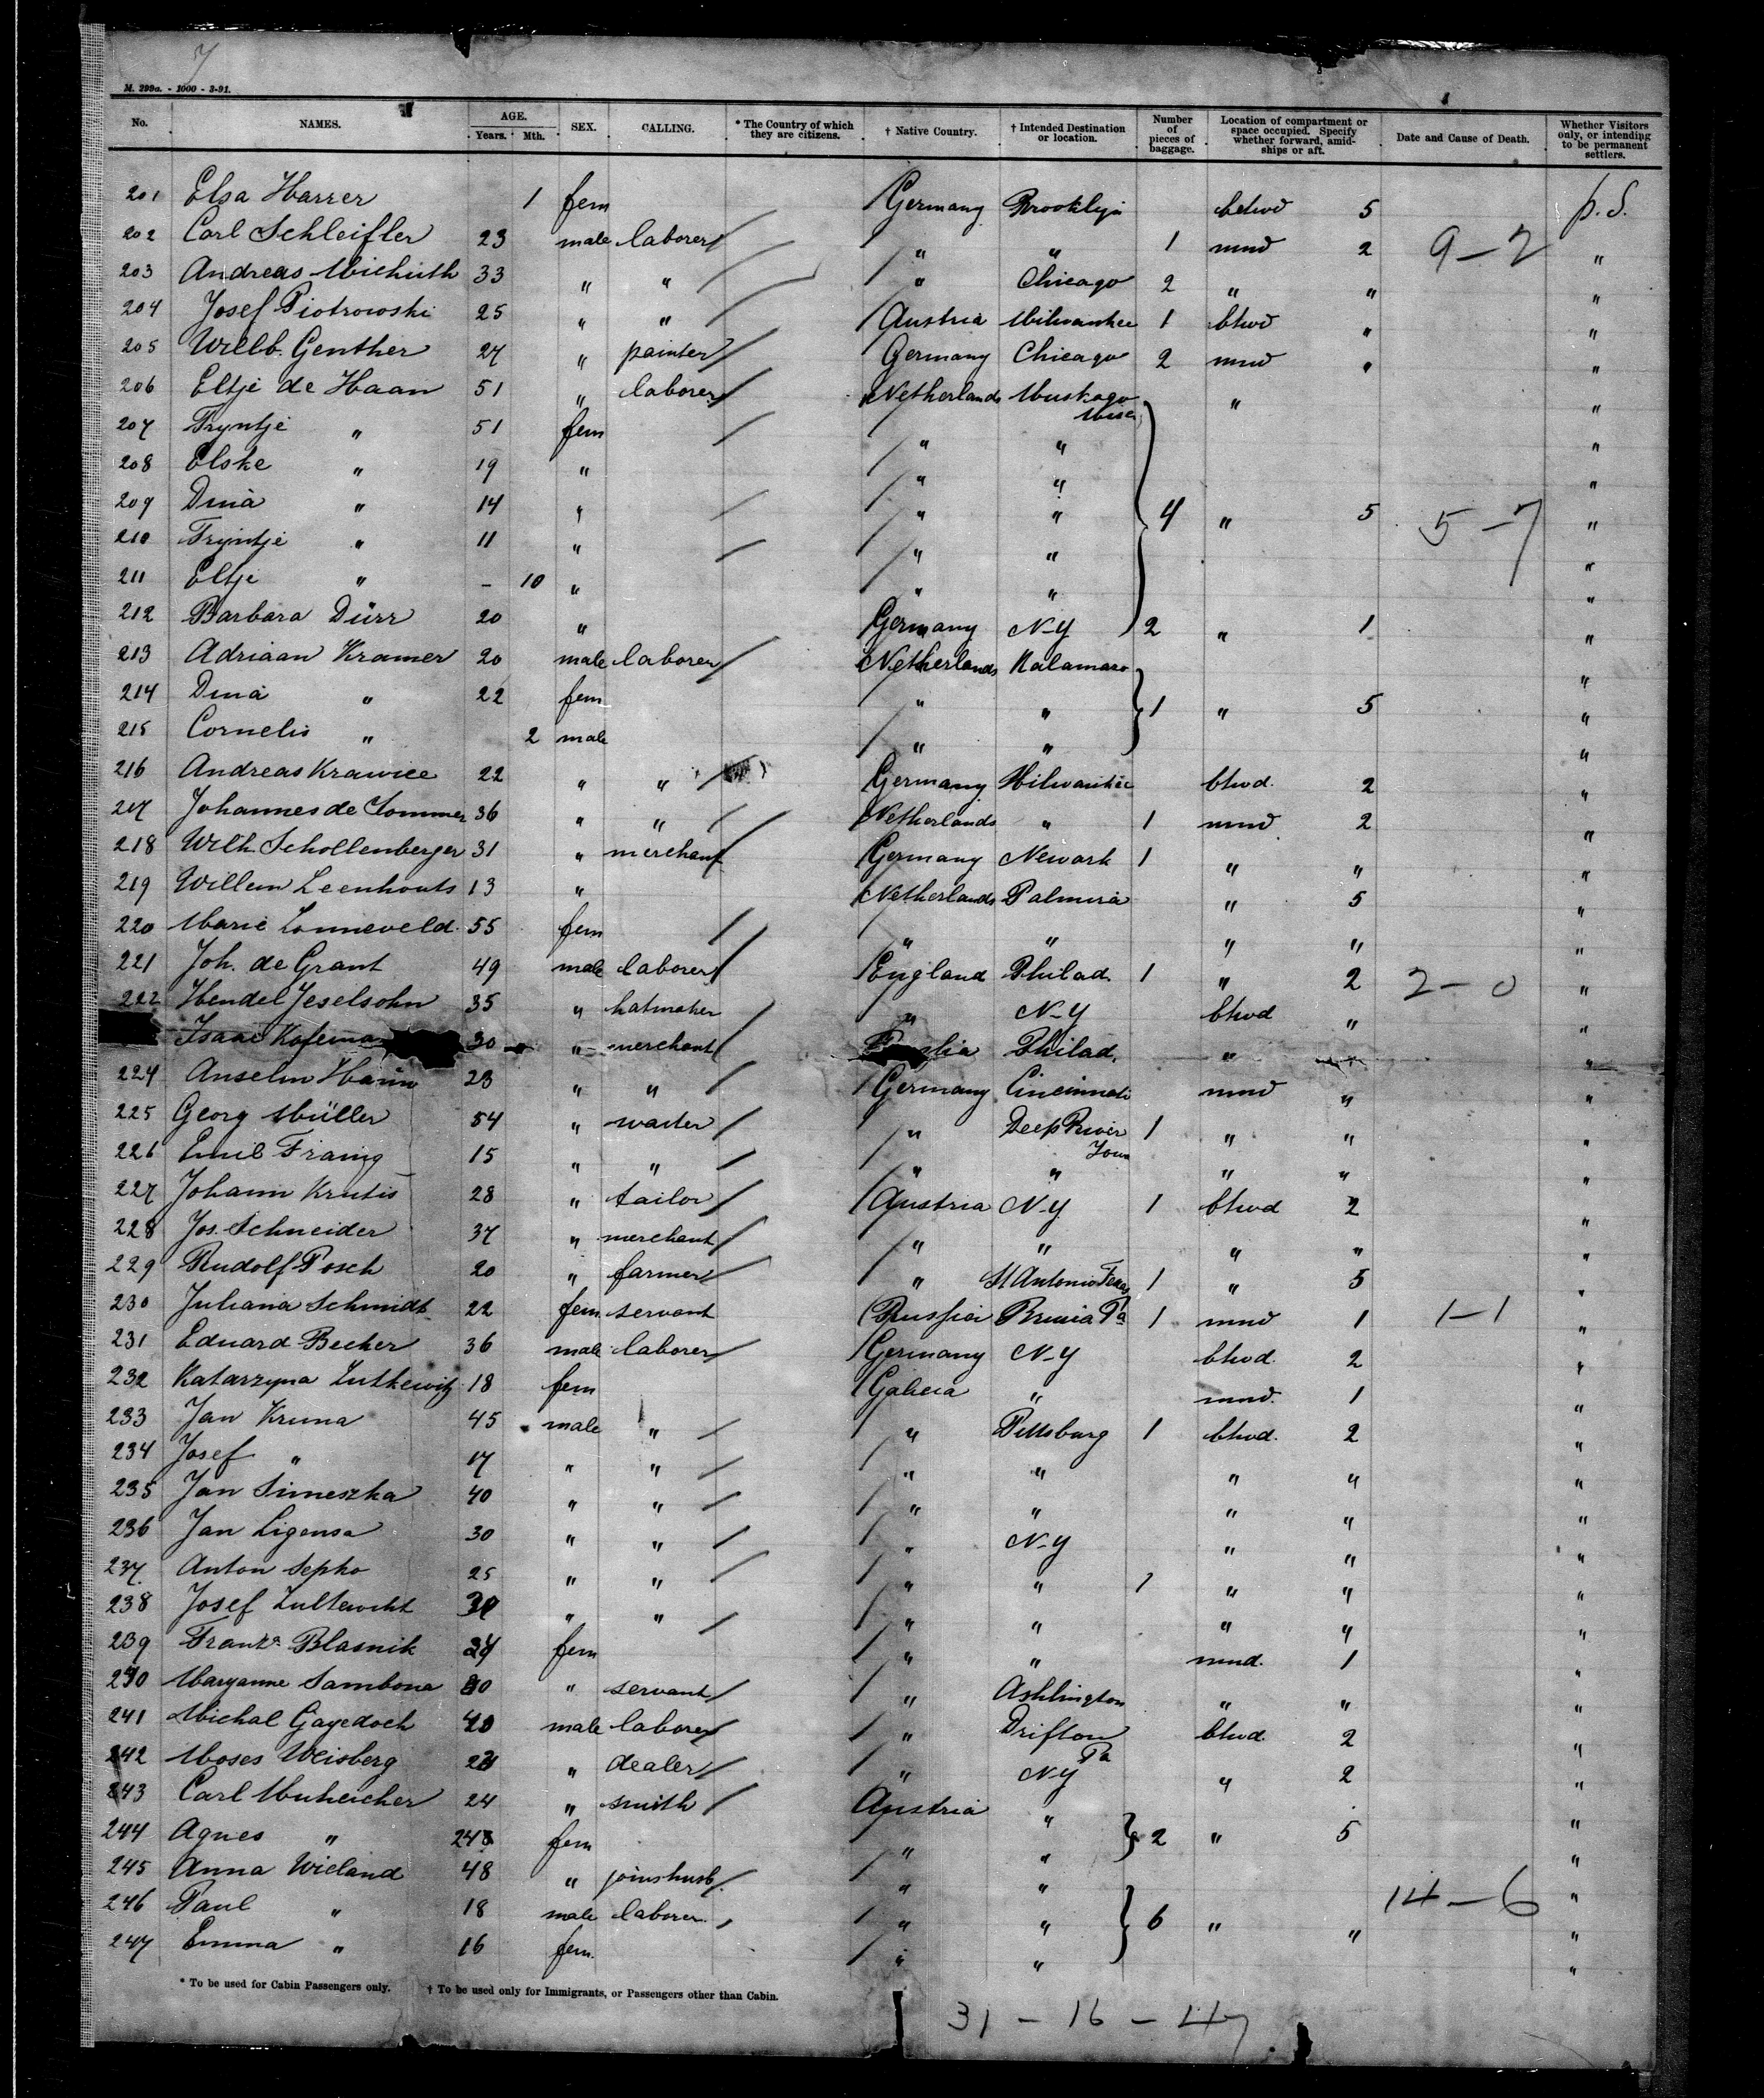 7
M. 299a. - 1000 - 3-91.
No. NAMES. AGE. Years. Mth. SEX. CALLING. * The Country of which they are citizens. † Native Country. † Intended Destination or location. Number of pieces of baggage. Location of compartment or space occupied. Specify whether forward, amidships or aft. Date and Cause of Death. Whether Visitors only, or intending to be permanent settlers.
201 Elsa Harrer 1 fem Germany Brooklyn 5 p.S.
202 Carl Schleifler 23 male laborer " " 1 mnd 2 9-2 "
203 Andreas Michuth 33 " " " Chicago 2 " " "
204 Josef Piotrowski 25 " " Austria Milwaukee 1 btwd " "
205 Wilh. Genther 27 " painter Germany Chicago 2 mnd " "
206 Eltje de Haan 51 " laborer Netherlands Muskago " "
207 Tryntje " 51 fem " " "
208 Elske " 19 " " " "
209 Dina " 14 " " " 4 " 5 5-7 "
210 Tryntje " 11 " " " "
211 Eltje " - 10 " " " "
212 Barbara Dürr 20 " Germany N-Y 2 " 1 "
213 Adriaan Kramer 20 male laborer Netherlands Kalamazo "
214 Dina " 22 fem " " 1 " 5 "
215 Cornelis " 2 male " " "
216 Andreas Krawice 22 " " Germany Milwaukee btwd. 2 "
217 Johannes de Sommer 36 " " Netherlands " 1 mnd 2 "
218 Wilh. Schollenberger 31 " merchant Germany Newark 1 " " "
219 Willem Leenhouts 13 " Netherlands Palmira " 5 "
220 Marie Lonneveld 55 fem " " " " "
221 Joh. de Grant 49 male laborer England Philad. 1 " 2 2-0 "
222 Hendel Jeselsohn 35 " hatmaker " N-Y btwd " "
Isaac 30 " merchant Philad. " "
224 Anselm 23 " " Germany Cincinnati mnd " "
225 Georg Müller 54 " waiter " Deep River Iowa 1 " " "
226 Emil Framg 15 " " " " " " "
227 Johann Krutis 28 " tailor Austria N-Y 1 btwd 2 "
228 Jos. Schneider 37 " merchant " " " " "
229 Rudolf Posch 20 " farmer " St Antonio Texas 1 " 5 "
230 Juliana Schmidt 22 fem servant Russia Pa 1 mnd 1 1-1 "
231 Eduard Becher 36 male laborer Germany N-Y btwd. 2 "
232 Katarzyna Lutkewitz 18 fem Galicia " mnd. 1 "
233 Jan Kruna 45 male " " Pittsburg 1 btwd. 2 "
234 Josef " 17 " " " " " " "
235 Jan Simeszka 40 " " " " " " "
236 Jan Ligensa 30 " " " N-Y " " "
237. Anton Sepko 25 " " " " 1 " " "
238 Josef " " " " " " "
239 Franzª Blasnik fem " " mnd. 1 "
240 Maryanne Sambona " servant " Ashlington " " "
241 Michal Gayedoch male laborer " Drifton Pa btwd. 2 "
242 Moses Weisberg " dealer " N-Y " 2 "
243 Carl Muheicher 24 " smith Austria " "
244 Agnes " fem " " 2 " 5 "
245 Anna Wieland 48 " joins husb. " " "
246 Paul " 18 male laborer " " 6 " " 14-6 "
247 Emma " 16 fem. " " "
* To be used for Cabin Passengers only. † To be used only for Immigrants, or Passengers other than Cabin.
31 - 16 - 47